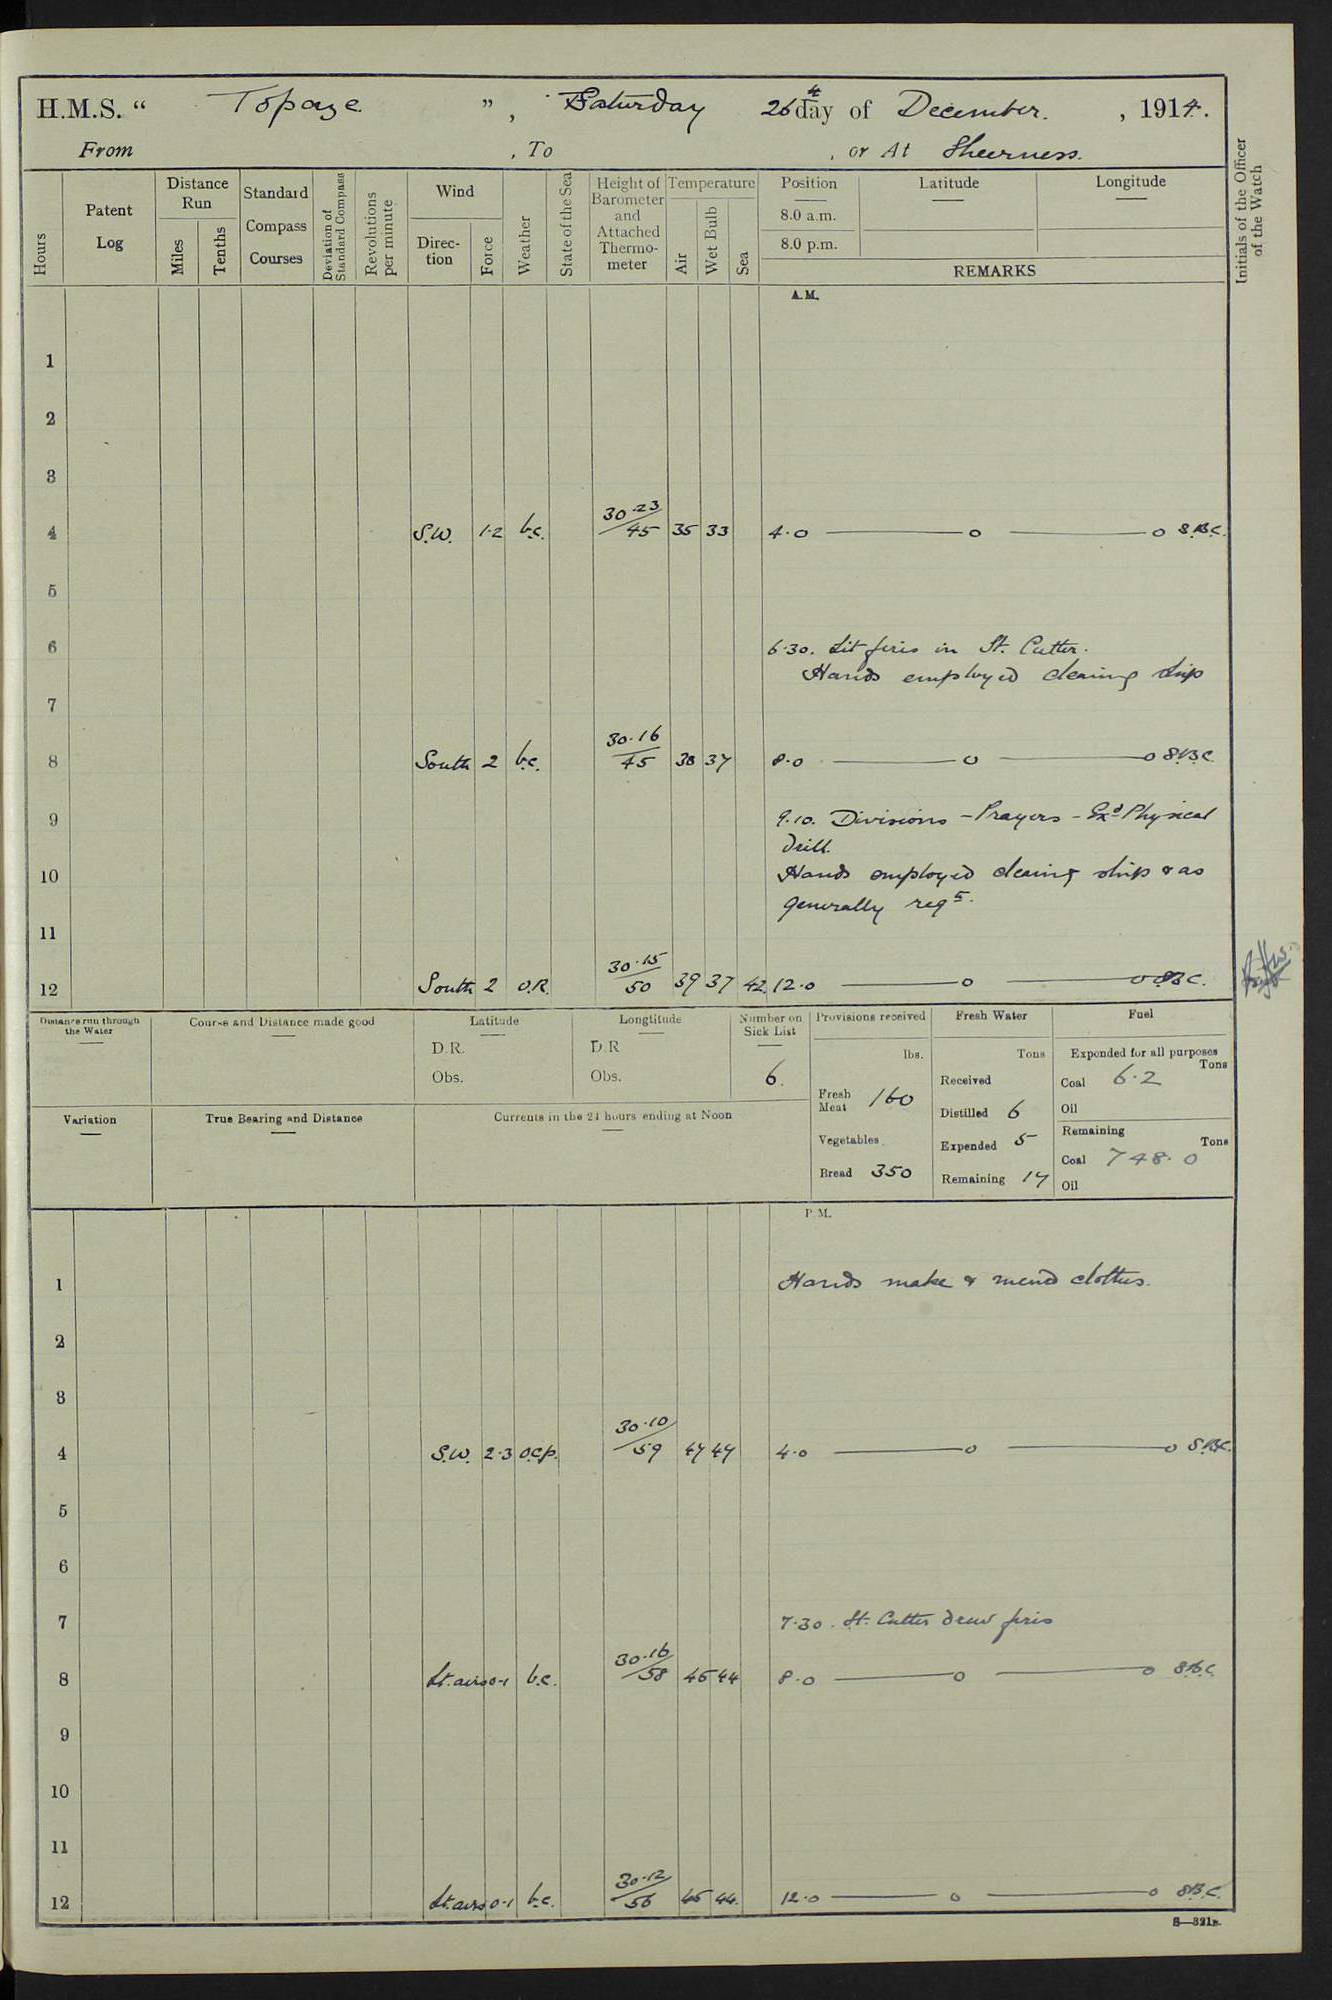 H.M.S. “ Topaze ” , Saturday 26th day of December. , 1914.
From , To , or At Sheerness.
Hours
Patent Log
Distance Run
Miles
Tenths
Standard Compass Courses
Deviation of Standard Compass
Revolutions per minute
Wind
Direction
Force
Weather
State of the Sea
Height of Barometer and Attached Thermometer
Temperature
Air
Wet Bulb
Sea
Position
8.0 a.m.
8.0 p.m.
Latitude
Longitude
REMARKS
Initials of the Officer of the Watch
A.M.
1
2
3
4 S.W. 1·2 b.c. 30·23/45 35 33 4·0 o o S.B.C.
5
6 6·30. Lit fires in St. Cutter.
Hands employed cleaning ship
7
8 South 2 b.c. 30·16/45 38 37 8·0 o o S.B.C.
9 9.10. Divisions - Prayers - Exd Physical
drill.
10 Hands employed cleaning ship & as
generally reqd.
11
12 South 2 O.R. 30·15/50 39 37 42 12·0 o o S.B.C.
Distance run through the Water
Course and Distance made good
Latitude
D.R.
Obs.
Longtitude
D.R
Obs.
Number on Sick List
6.
Provisions received
lbs.
Fresh Meat 160
Vegetables
Bread 350
Fresh Water
Tons
Received
Distilled 6
Expended 5
Remaining 17
Fuel
Expended for all purposes
Tons
Coal 6·2
Oil
Remaining
Tons
Coal 748·0
Oil
Variation
True Bearing and Distance
Currents in the 24 hours ending at Noon
P.M.
1 Hands make & mend clothes.
2
3
4 S.W. 2·3 o.c.p. 30·10/59 47 47 4·0 o o S.B.C.
5
6
7 7·30. St. Cutter drew fires
8 Lt. airs 0-1 b.c. 30·16/58 45 44 8·0 o o S.B.C.
9
10
11
12 Lt. airs 0-1 b.c. 30·12/56 45 44. 12·0 o o S.B.C.
S—321B.